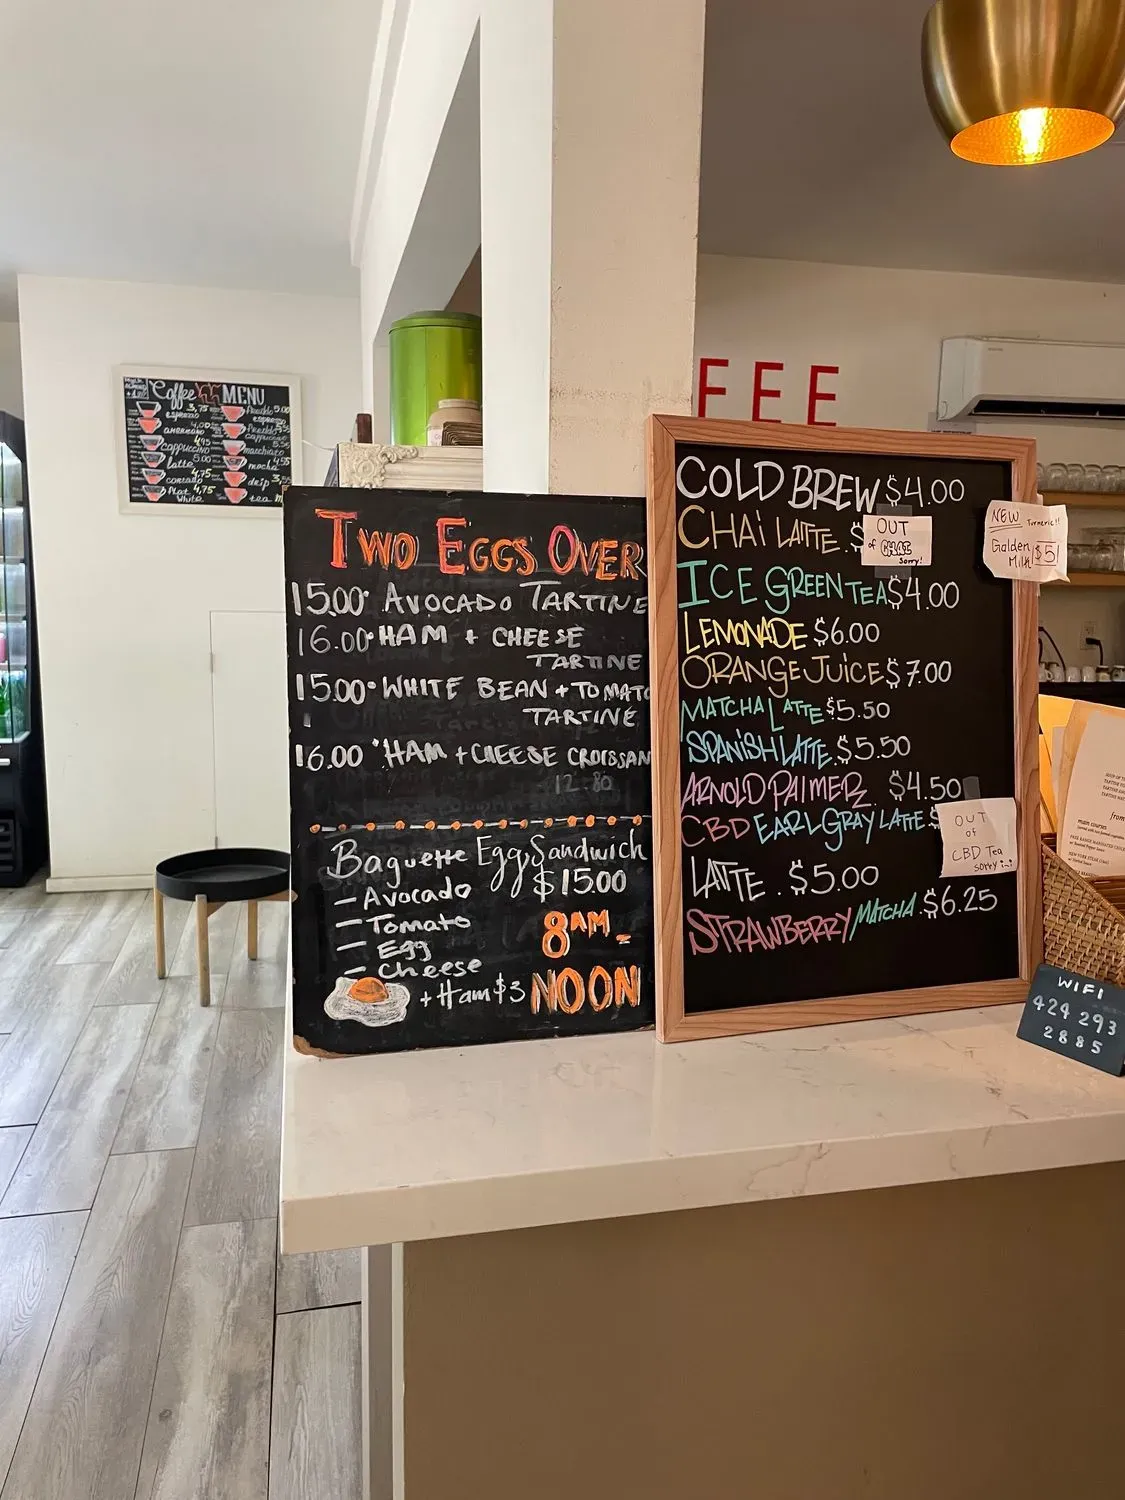 Coffee MENU
3,75
espresso
4,00
americano
4,95
cappuccino
5.00
latte
4,75
cortado
Flat 4,75
White
5.00
espresso
cappuccino
macchiato
4.55
mocha
drip
tea
FEE
TWO EGGS OVER
15.00 AVOCADO TARTINE
16.00 HAM + CHEESE
TARTINE
15.00 WHITE BEAN + TOMATO
TARTINE
16.00 HAM + CHEESE CROISSAN
Baguette Egg Sandwich
$15.00
- Avocado
- Tomato
- Egg
- Cheese
+ Ham $3
8AM -
NOON
COLD BREW $4.00
CHAI LATTE . $
OUT
of
Sorry!
ICE GREEN TEA $4.00
LEMONADE $6.00
ORANGE JUICE $7.00
MATCHA LATTE $5.50
SPANISH LATTE . $5.50
ARNOLD PALMER $4.50
CBD EARL GRAY LATTE $
OUT
of
CBD Tea
sorry
LATTE . $5.00
STRAWBERRY MATCHA . $6.25
NEW Turmeric!!
Golden
Milk $5
main courses
WIFI
424 293
2885